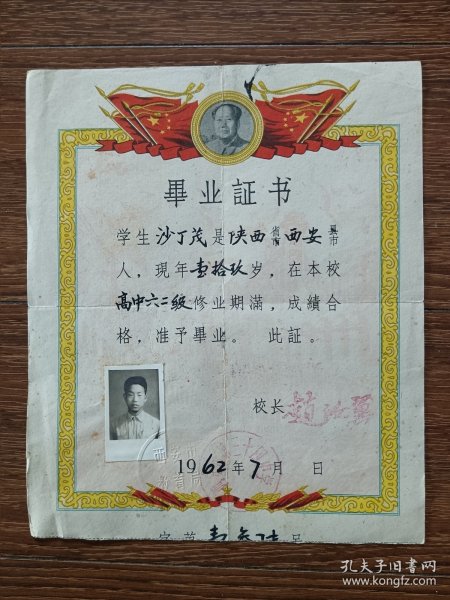 畢业証书
学生沙丁茂是陕西省市西安县市
人，現年壹拾玖岁，在本校
高中六二級修业期滿，成績合
格，准予畢业。此証。
校长
1962年7月 日
字第 号
孔夫子旧书网
www.kongfz.com